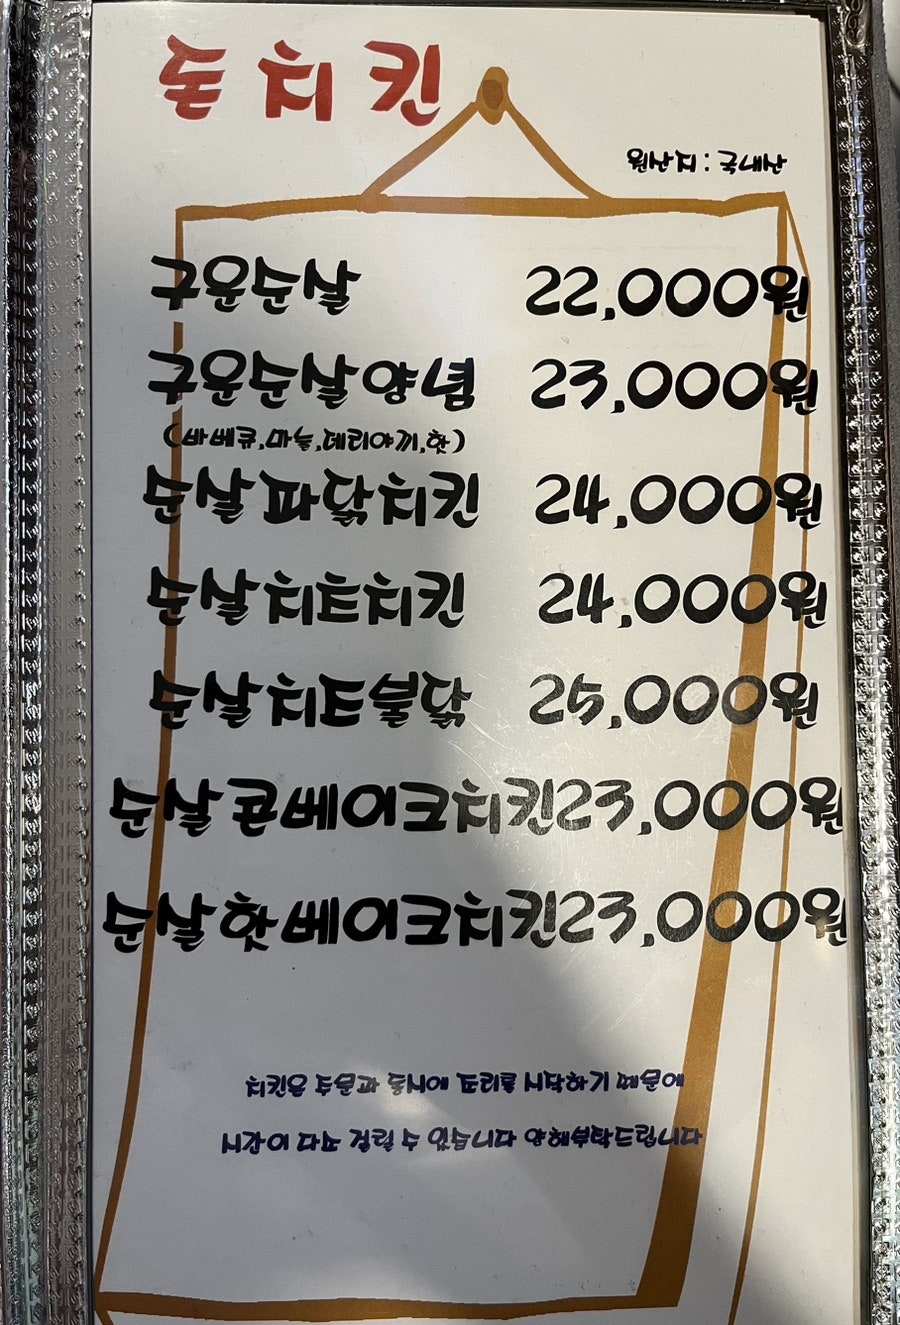 돈치킨
원산지 : 국내산
구운순살 22,000원
구운순살양념 23,000원
(바베큐,마늘,데리야끼,핫)
순살파닭치킨 24,000원
순살치즈치킨 24,000원
순살치즈불닭 25,000원
순살콘베이크치킨23,000원
순살핫베이크치킨23,000원
치킨은 주문과 동시에 조리를 시작하기 때문에
시간이 다소 걸릴 수 있습니다 양해부탁드립니다